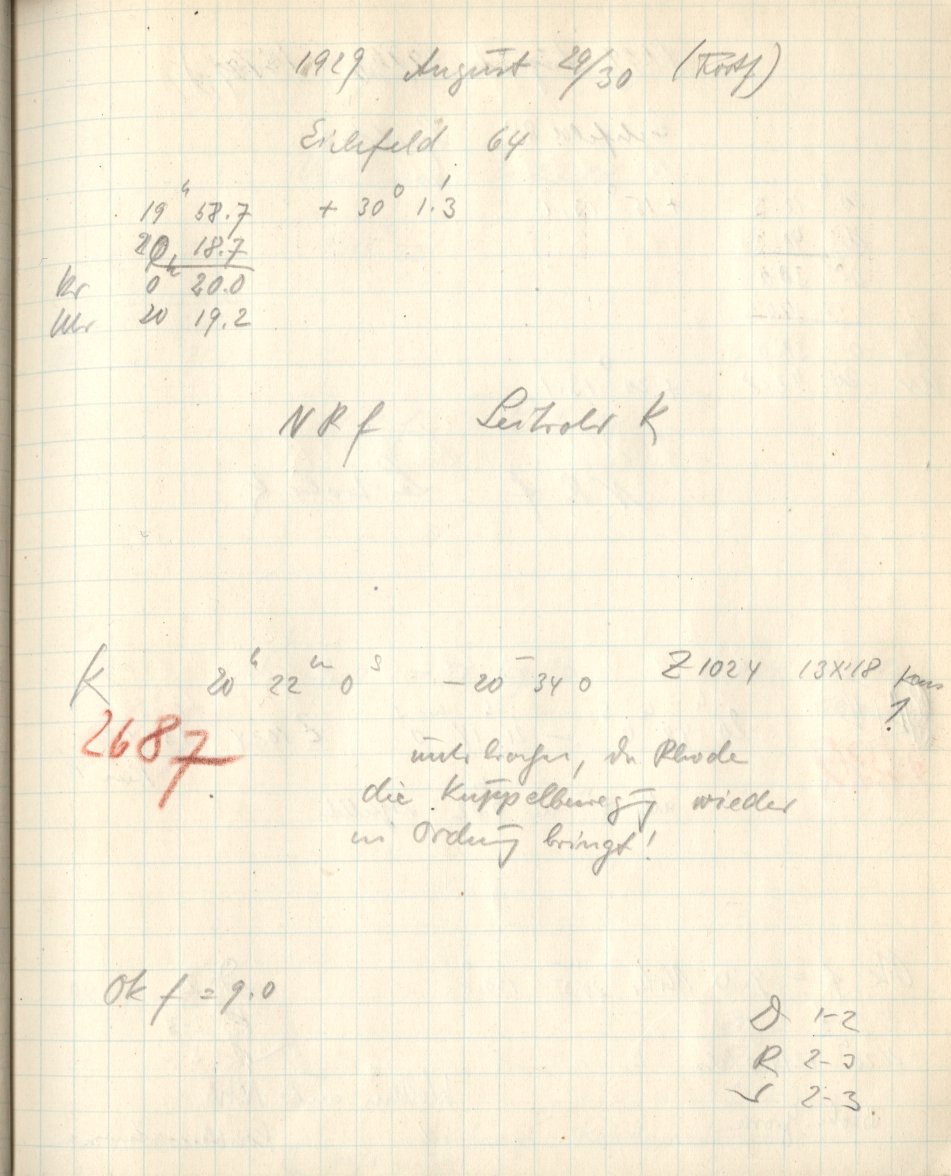 1929 August 29/30 (Forts)
Eichfeld 64
19 h 58.7 + 30° 1.'3
20 18.7
Kr 0 h 20.0
Uhr 20 19.2
NRf Leitrohr K
K 20 h 22 m 0 s − 20 34 0 Z 1024 13X18
2687
unterbrochen, da Rhode
die Kuppelbewegg wieder
in Ordnung bringt!
Ok f = 9.0
D 1-2
R 2-3
2-3